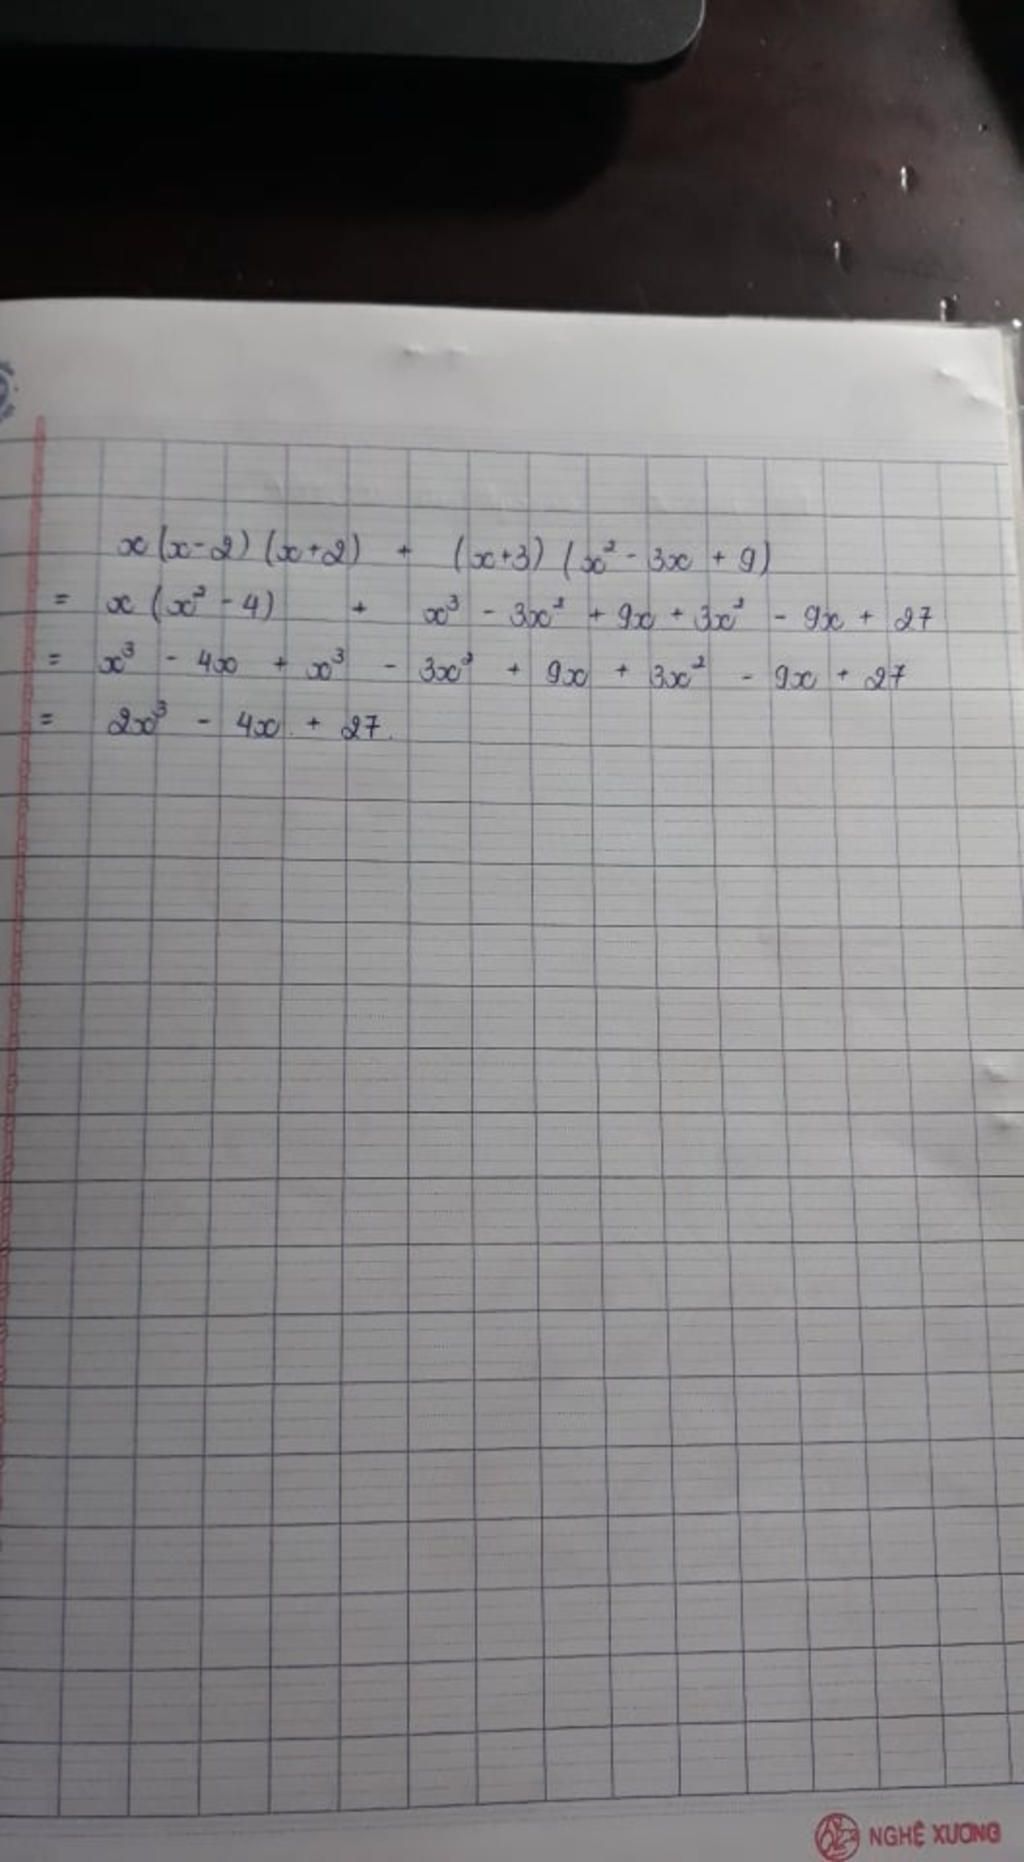 x(x-2)(x+2) + (x+3)(x² - 3x + 9)
= x(x² - 4) + x³ - 3x² + 9x + 3x² - 9x + 27
= x³ - 4x + x³ - 3x² + 9x + 3x² - 9x + 27
= 2x³ - 4x + 27.
NGHỆ XƯƠNG